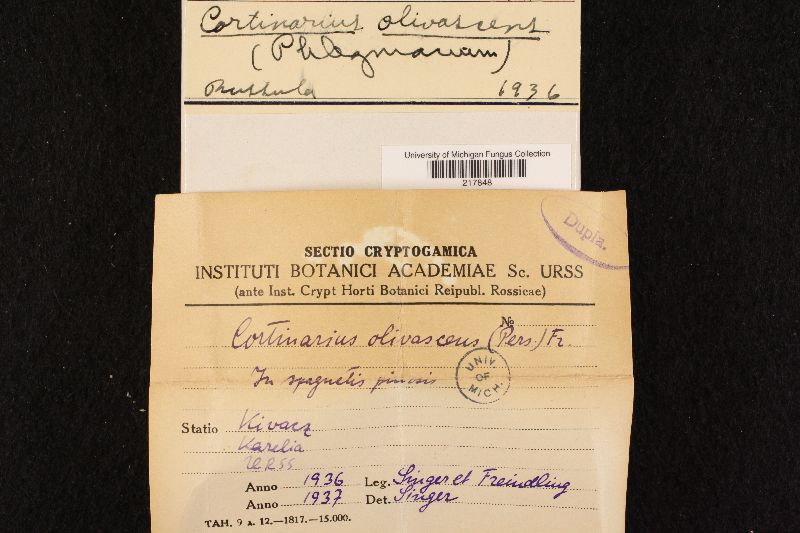 Cortinarius olivascens
(Phlegmacium)
1936
University of Michigan Fungus Collection
217848
Dupla.
SECTIO CRYPTOGAMICA
INSTITUTI BOTANICI ACADEMIAE Sc. URSS
(ante Inst. Crypt Horti Botanici Reipubl. Rossicae)
№
Cortinarius olivascens (Pers.) Fr.
In spagnetis pinosis
UNIV. OF MICH.
Statio Kivacz
Karelia
URSS
Anno 1936 Leg. Singer et Freindling
Anno 1937 Det. Singer
TAH. 9 a. 12.—1817.—15.000.